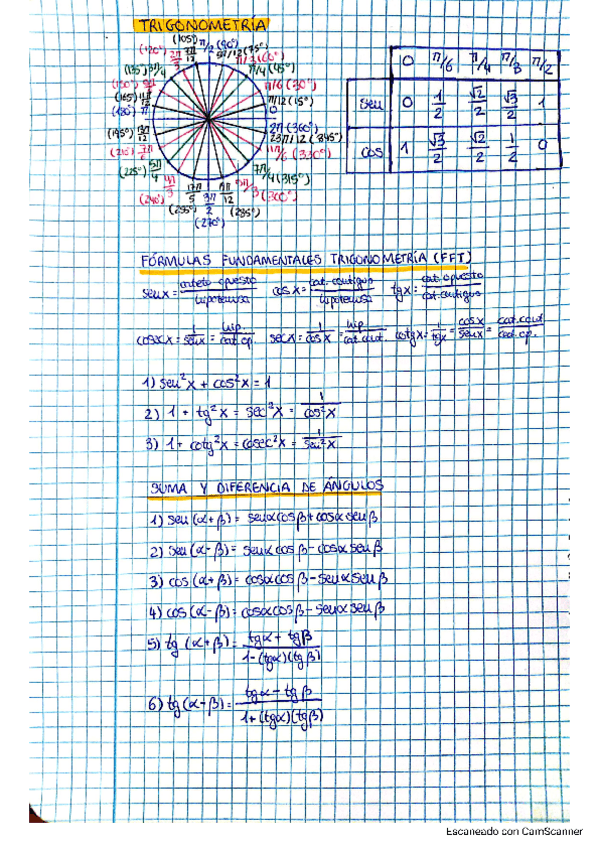 TRIGONOMETRÍA
(105°) 7π/12 π/2 (90°) 5π/12 (75°)
(120°) 2π/3 π/3 (60°)
(135°) 3π/4 π/4 (45°)
(150°) 5π/6 π/6 (30°)
(165°) 11π/12 π/12 (15°)
(180°) π 0
2π (360°)
(195°) 13π/12 23π/12 (345°)
(210°) 7π/6 11π/6 (330°)
(225°) 5π/4 7π/4 (315°)
(240°) 4π/3 5π/3 (300°)
(255°) 17π/5 3π/2 19π/12 (285°)
(270°)
0 π/6 π/4 π/3 π/2
sen 0 1/2 √2/2 √3/2 1
cos 1 √3/2 √2/2 1/2 0
FÓRMULAS FUNDAMENTALES TRIGONOMETRÍA (FFT)
sen x = cateto opuesto/hipotenusa cos x = cat. contiguo/hipotenusa tg x = cat. opuesto/cat. contiguo
cosec x = 1/sen x = hip./cat. op. sec x = 1/cos x = hip./cat. cont. cotg x = 1/tg x = cos x/sen x = cat. cont./cat. op.
1) sen²x + cos²x = 1
2) 1 + tg²x = sec²x = 1/cos²x
3) 1 + cotg²x = cosec²x = 1/sen²x
SUMA Y DIFERENCIA DE ÁNGULOS
1) sen (α+β) = senα cosβ + cosα sen β
2) sen (α-β) = senα cos β - cosα sen β
3) cos (α+β) = cosα cos β - senα sen β
4) cos (α-β) = cosα cosβ - senα sen β
5) tg (α+β) = tgα + tgβ/1-(tgα)(tgβ)
6) tg (α-β) = tgα - tg β/1+(tgα)(tgβ)
Escaneado con CamScanner